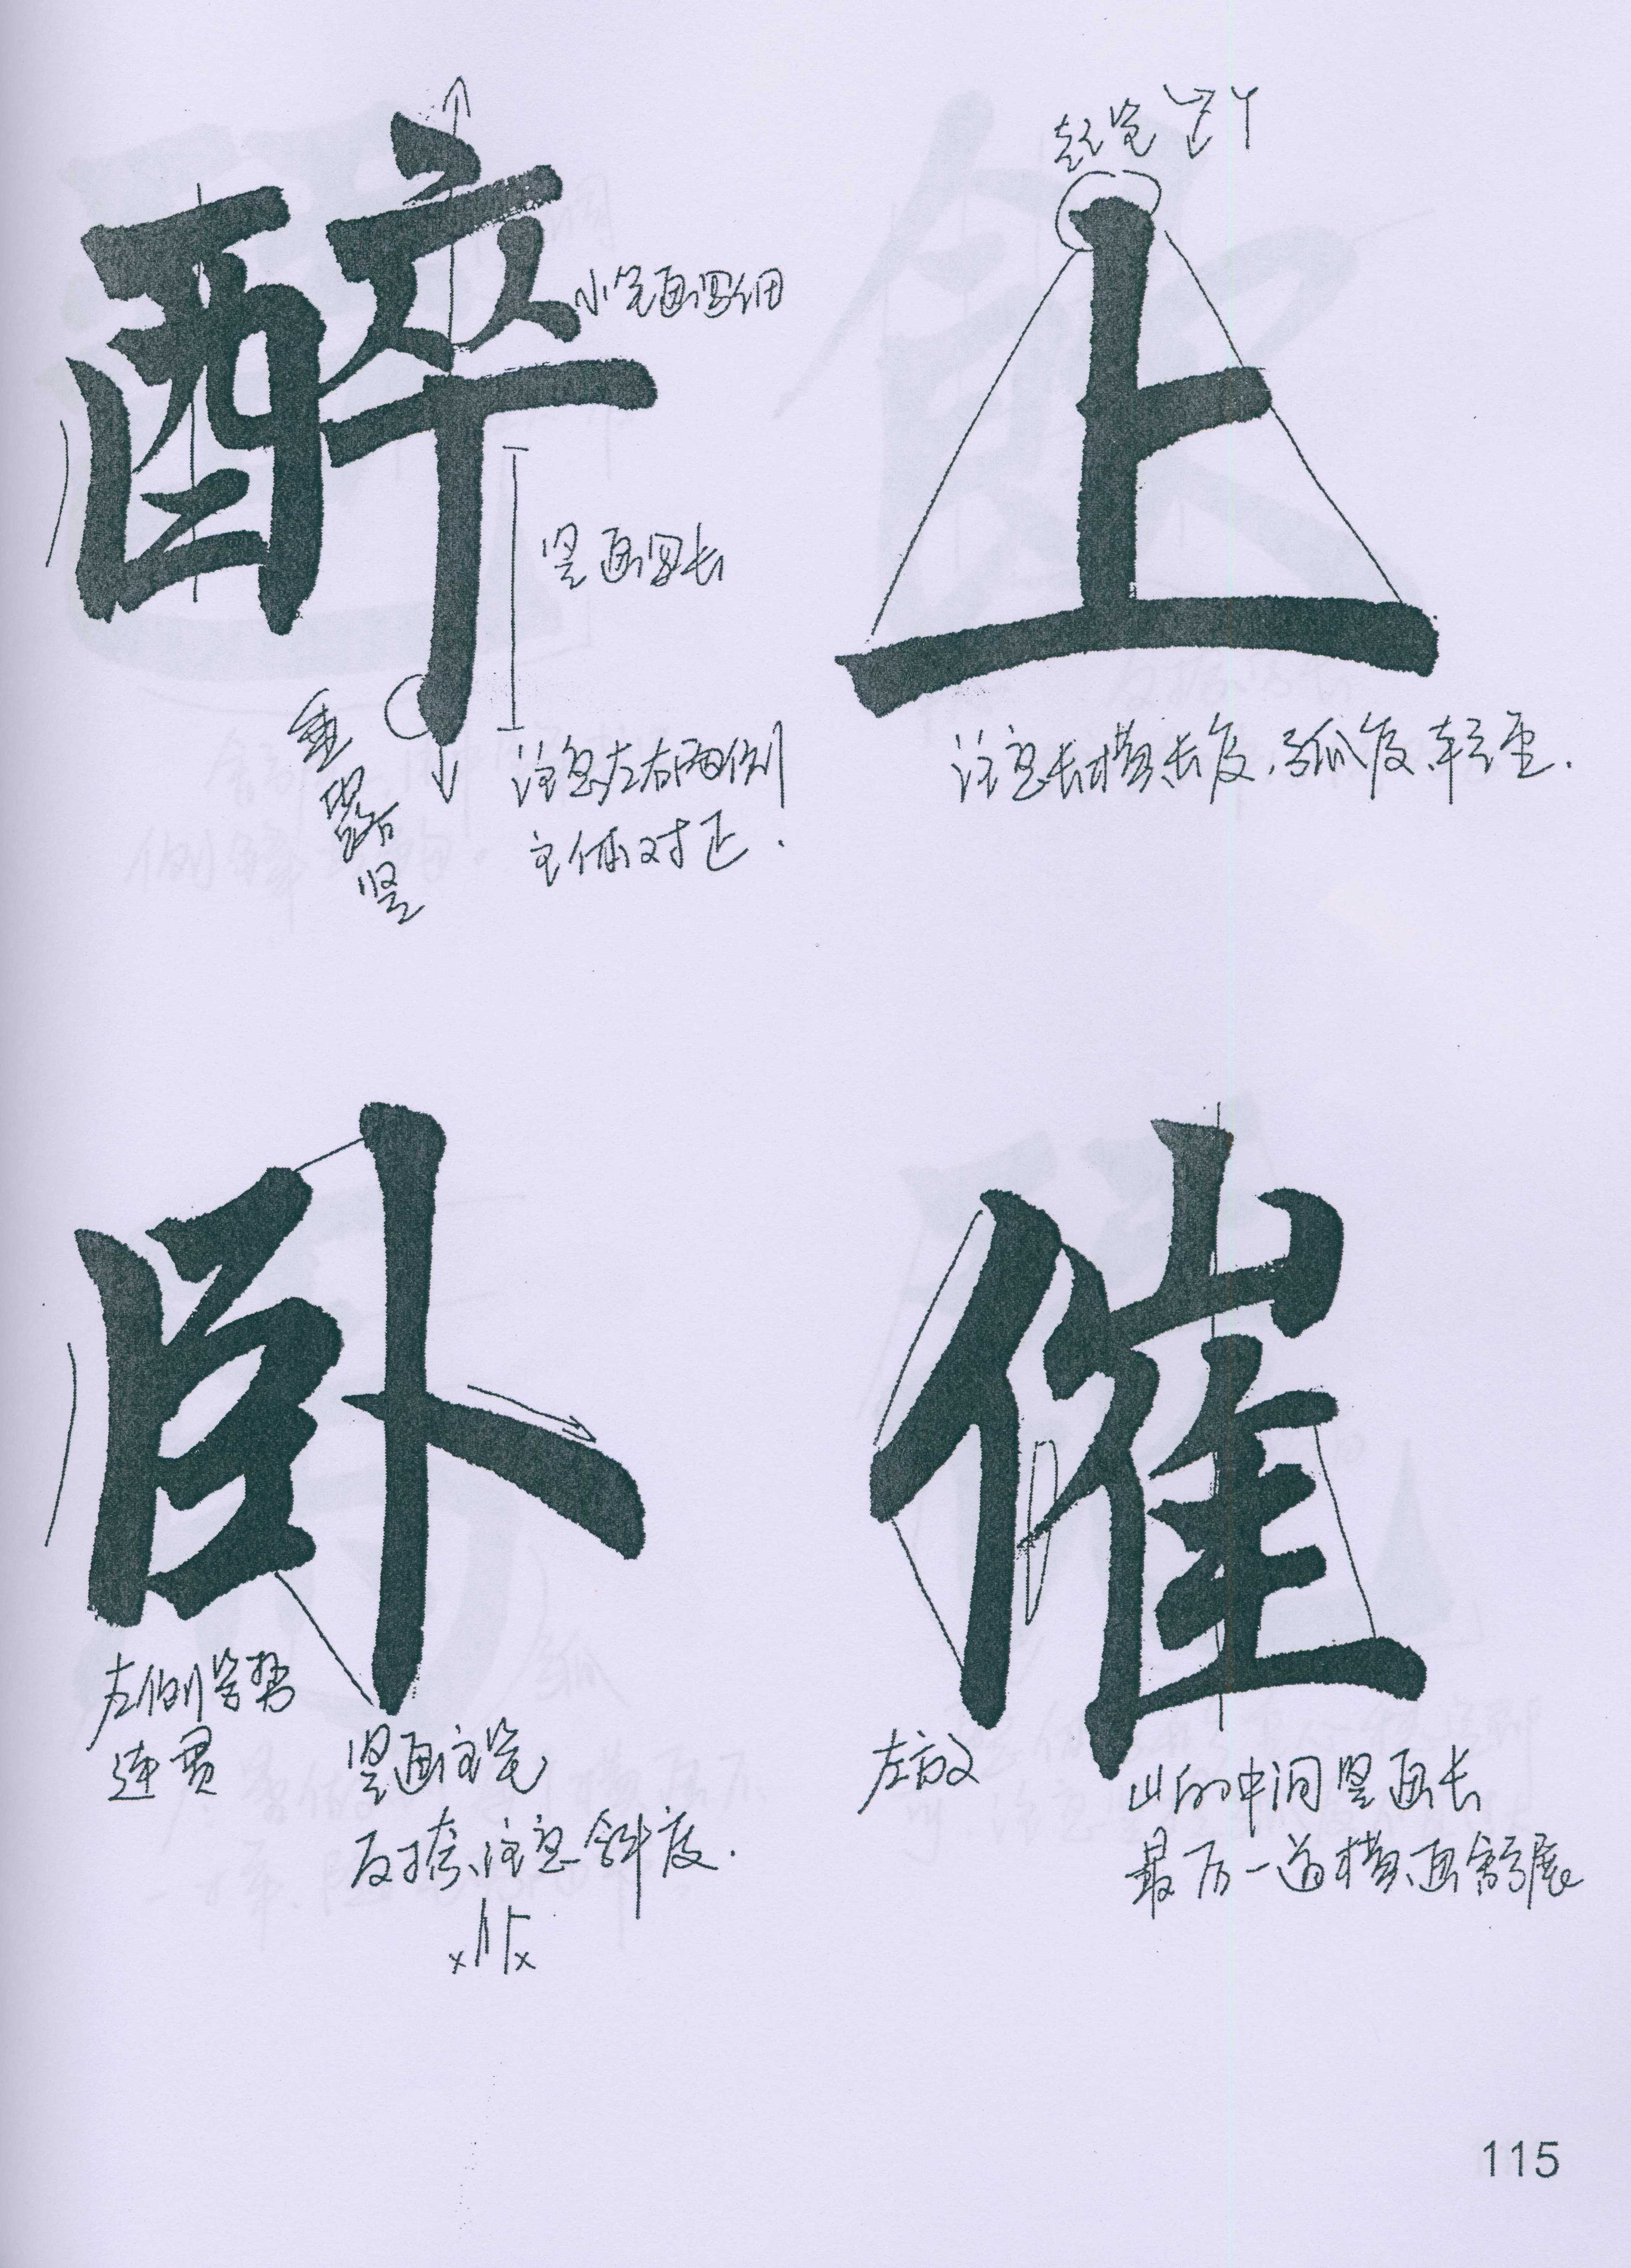 醉
小笔画写细
竖画写长
垂
露
竖
注意左右两侧
主体对正.
起笔
上
注意长横长度、弧度、轻重.
卧
左侧笔势
连贯
竖画主笔
反捺、注意斜度.
催
左放
山的中间竖画长
最后一道横画舒展
115